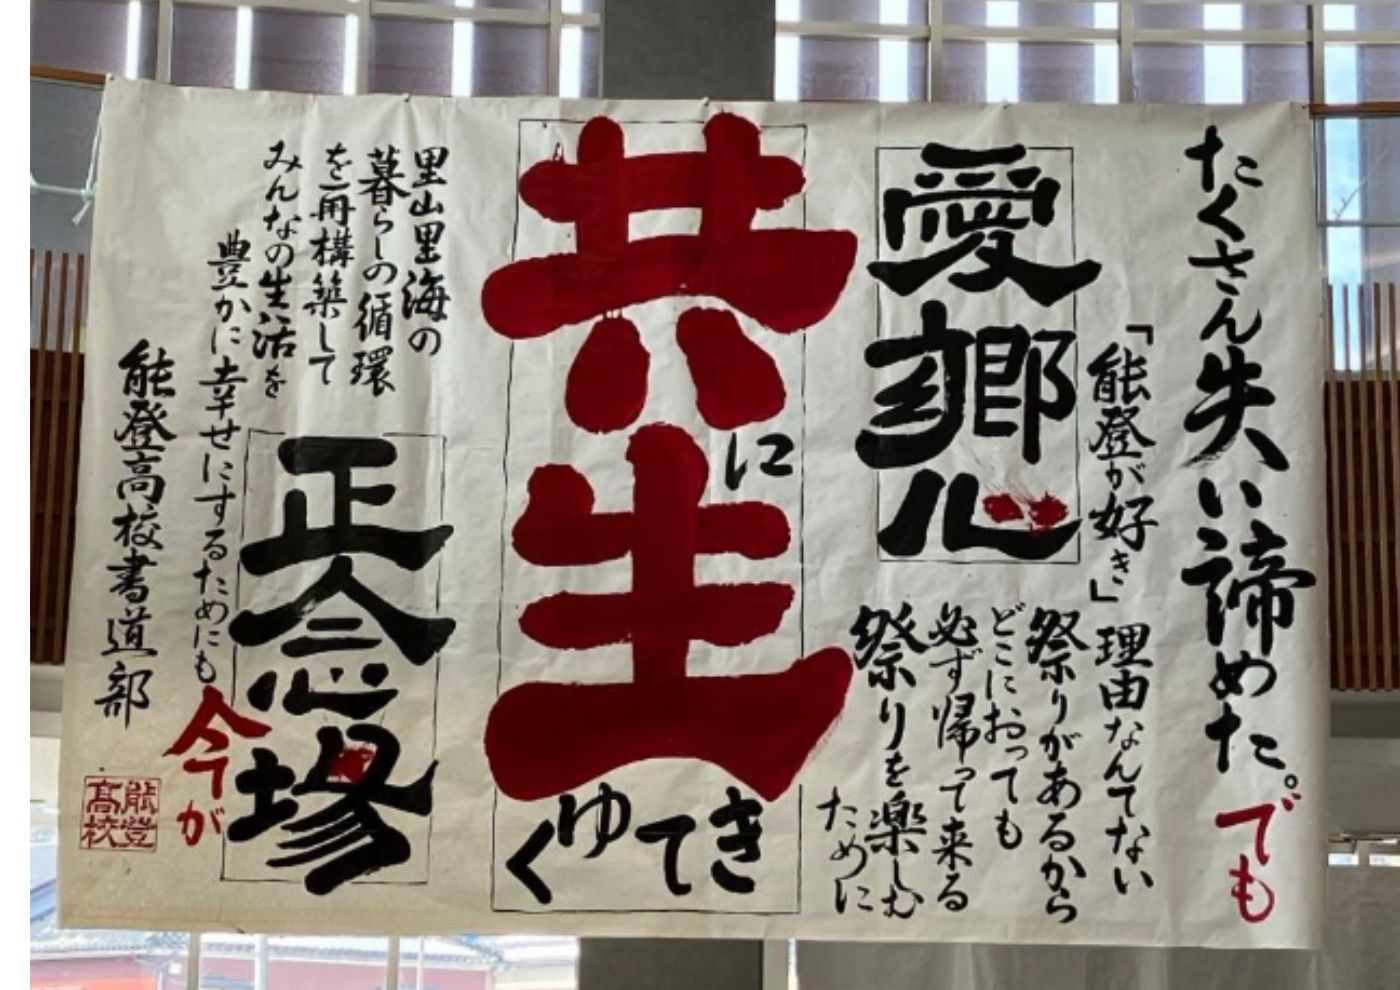 たくさん失い諦めた。でも
「能登が好き」理由なんてない
愛郷心
祭りがあるから
どこにおっても
必ず帰って来る
祭りを楽しむ
ために
共に生きてゆく
里山里海の
暮らしの循環
を再構築して
みんなの生活を
豊かに幸せにするためにも
今が
正念場
能登高校書道部
能登
高校